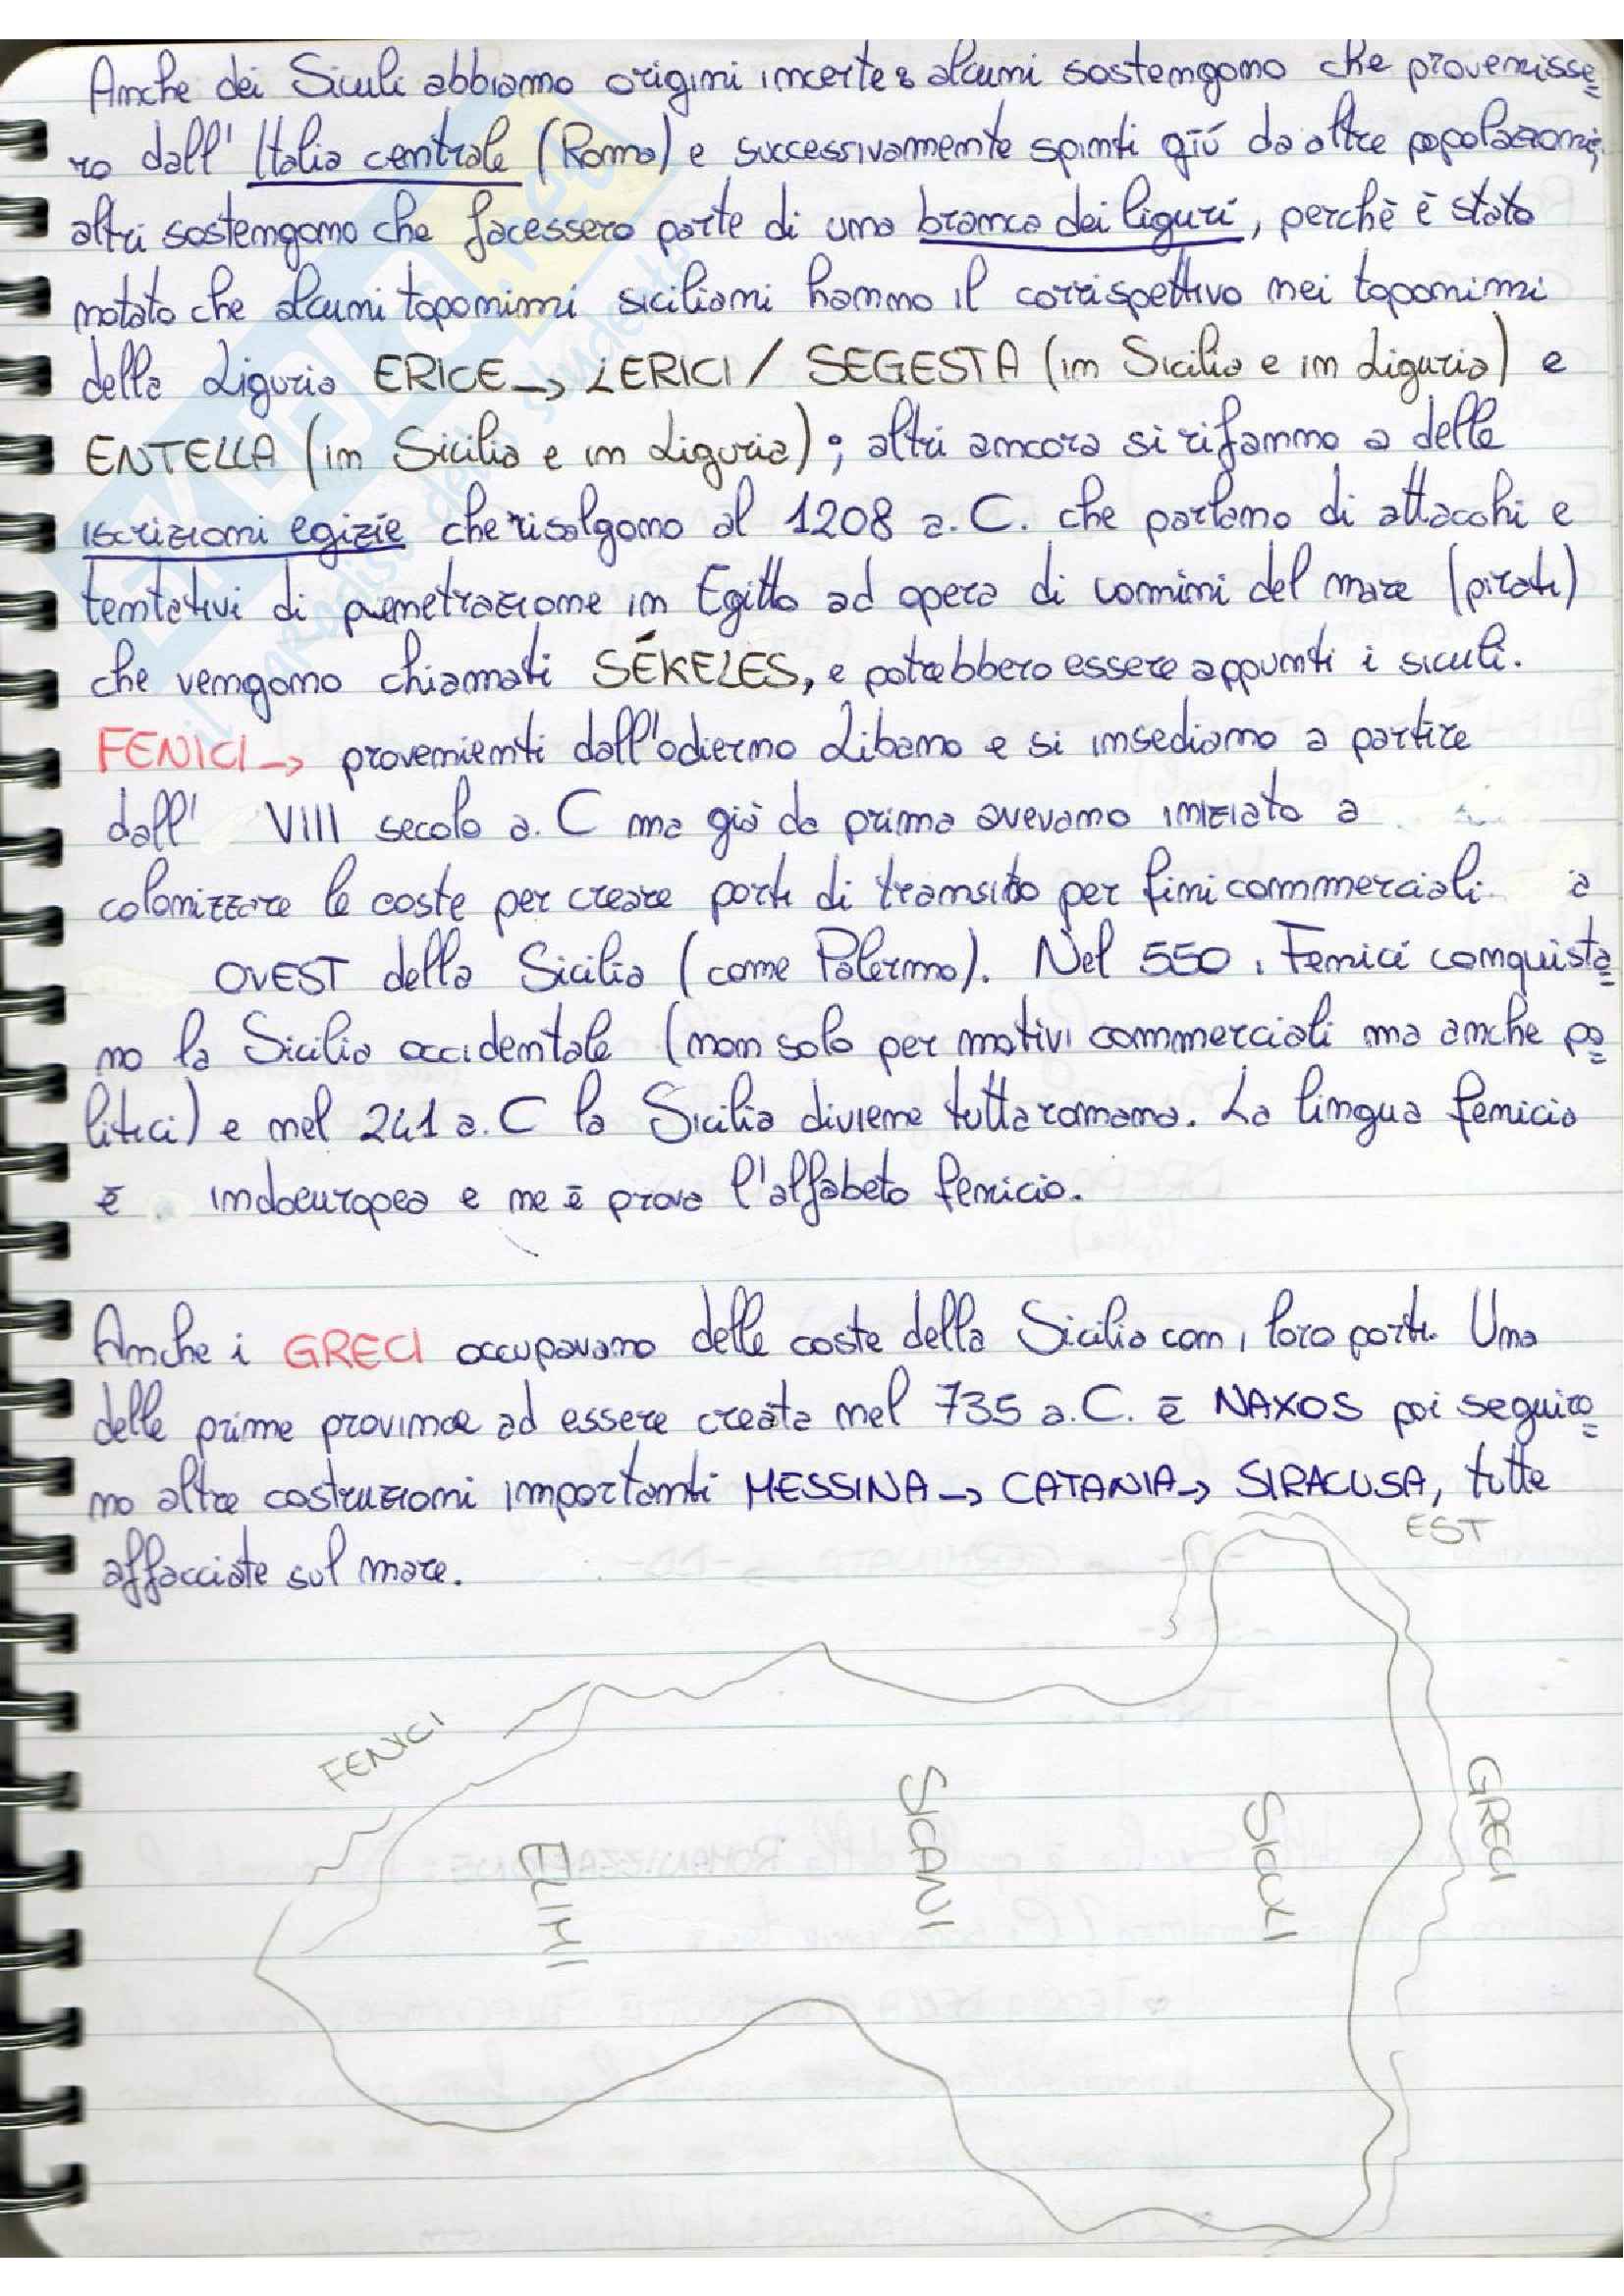 Anche dei Siculi abbiamo origini incerte: alcuni sostengono che provenisse=
ro dall'Italia centrale (Roma) e successivamente spinti giú da altre popolazioni;
altri sostengono che facessero parte di una branca dei liguri, perchè è stato
notato che alcuni toponimi siciliani hanno il corrispettivo nei toponimi
della Liguria ERICE → LERICI / SEGESTA (in Sicilia e in Liguria) e
ENTELLA (in Sicilia e in Liguria); altri ancora si rifanno a delle
iscrizioni egizie che risalgono al 1208 a.C. che parlano di attacchi e
tentativi di penetrazione in Egitto ad opera di uomini del mare (pirati)
che vengono chiamati SÉKELES, e potrebbero essere appunti i siculi.
FENICI → provenienti dall'odierno Libano e si insediano a partire
dall' VIII secolo a.C ma già da prima avevano iniziato a
colonizzare le coste per creare porti di transito per fini commerciali a
OVEST della Sicilia (come Palermo). Nel 550 i Fenici conquista=
no la Sicilia occidentale (non solo per motivi commerciali ma anche po=
litici) e nel 241 a.C la Sicilia diviene tutta romana. La lingua fenicia
è indoeuropea e ne è prova l'alfabeto fenicio.
Anche i GRECI occupavano delle coste della Sicilia con i loro porti. Una
delle prime province ad essere creata nel 735 a.C. è NAXOS poi seguiro=
no altre costruzioni importanti MESSINA → CATANIA → SIRACUSA, tutte
affacciate sul mare.
EST
FENICI
ELIMI
SICANI
SICULI
GRECI